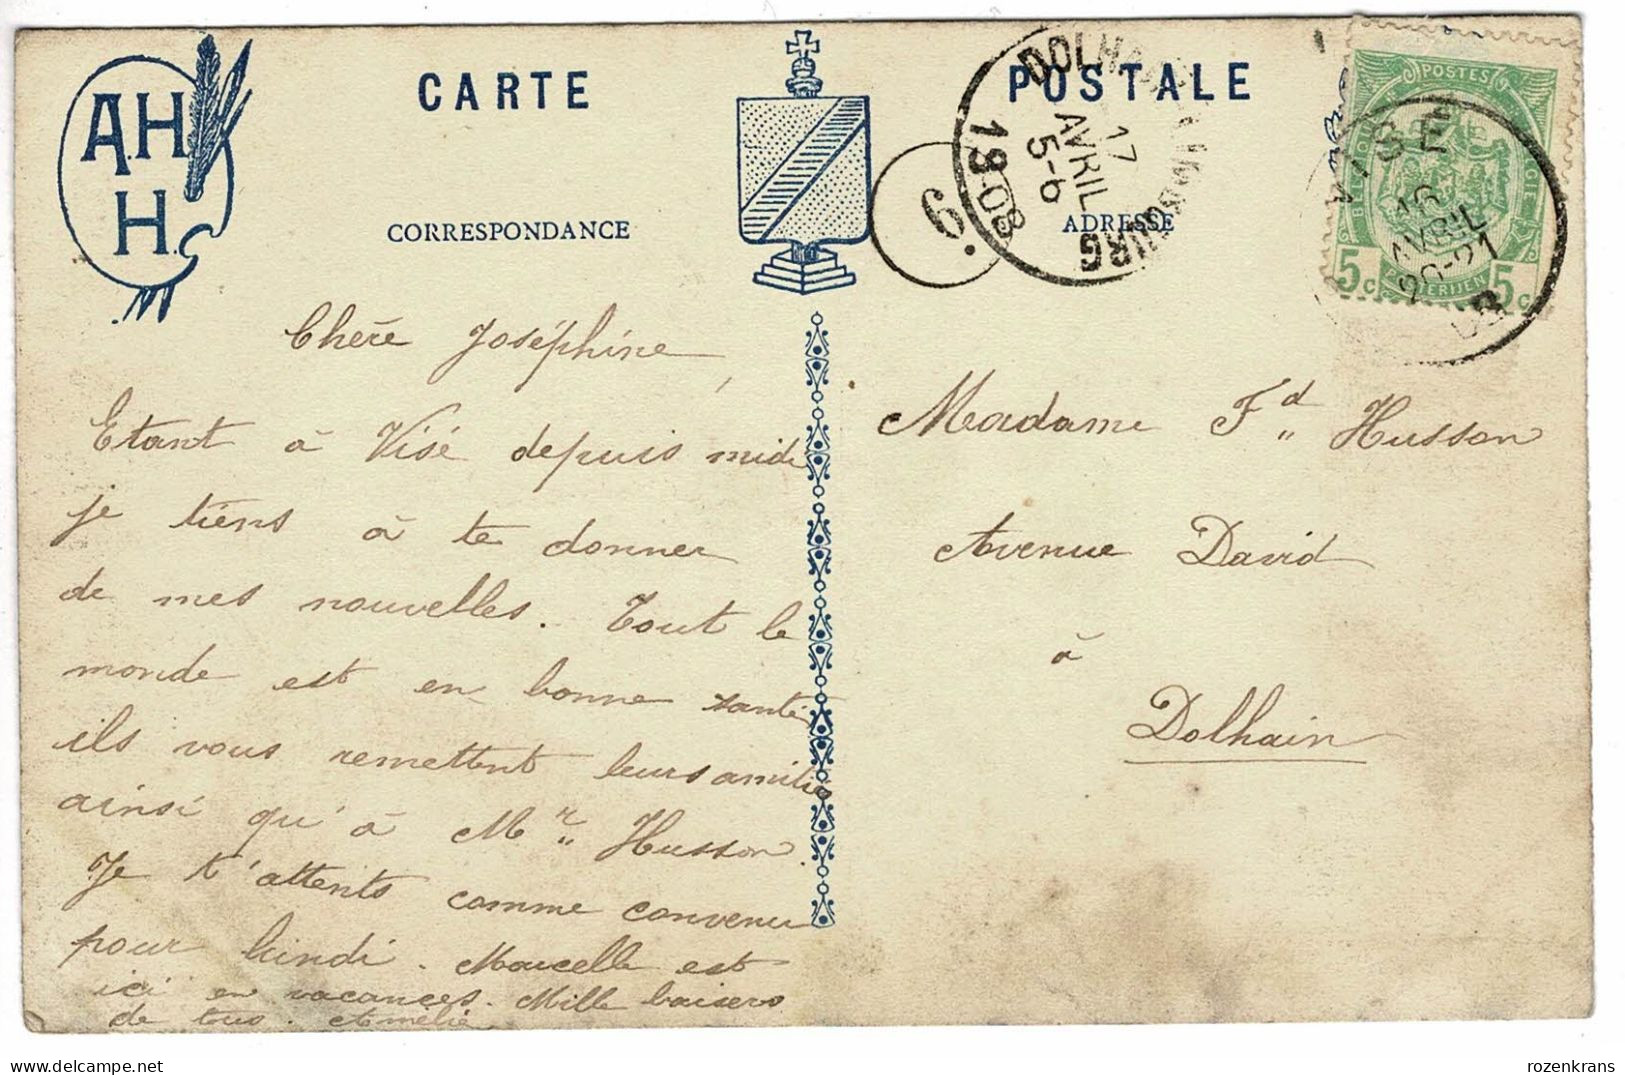 A.H
H.
CARTE POSTALE
CORRESPONDANCE
ADRESSE
9.
DOLHAIN LIMBOURG
17
AVRIL
5-6
1908
POSTES
BELGIQUE BELGIE
POSTERIJEN
5c 5c
VISÉ
16
AVRIL
20-21
Chère Joséphine,
Etant à Visé depuis midi
je tiens à te donner
de mes nouvelles. Tout le
monde est en bonne santé,
ils vous remettent leurs amitiés
ainsi qu'à Mr Husson.
Je t'attents comme convenu
pour lundi. Marcelle est
ici en vacances. Mille baisers
de tous. Amélie
Madame Fd Husson
Avenue David
à
Dolhain
rozenkrans